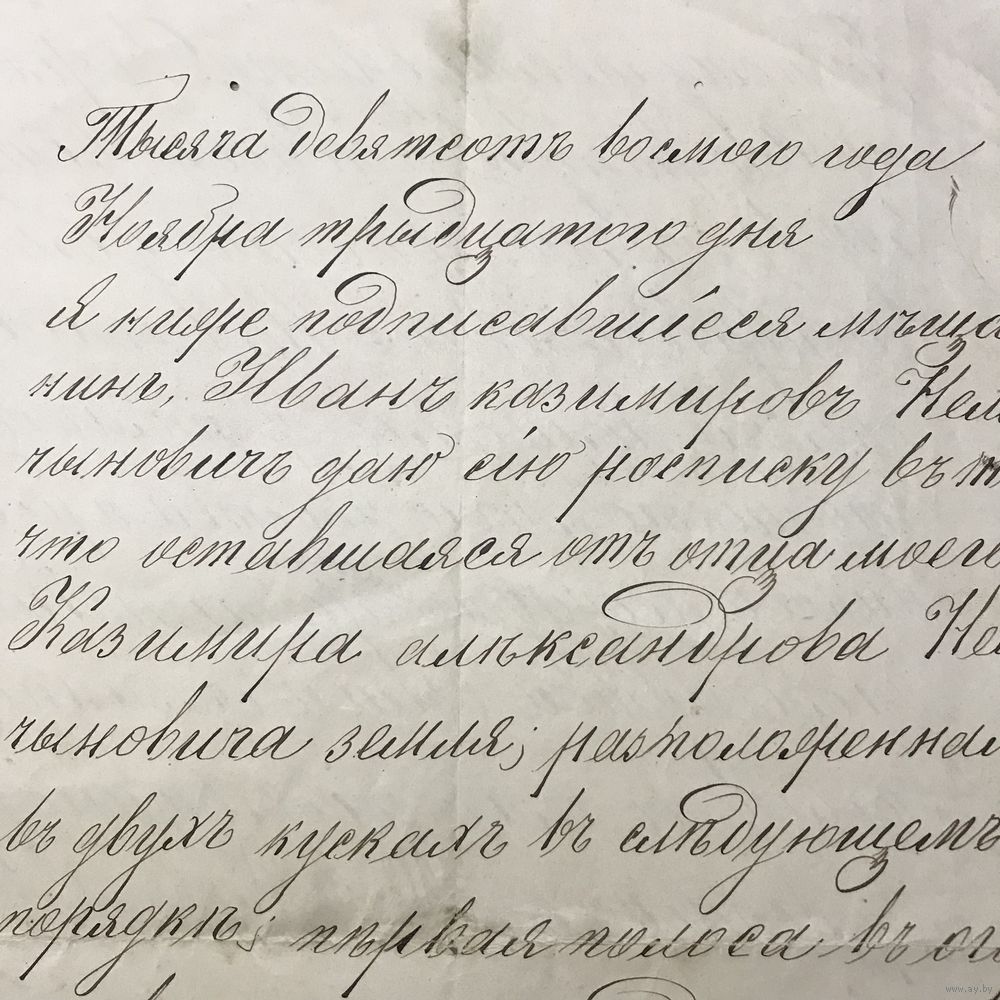 Тысяча девятсотъ восмого года
Ноября трыдцатого дня
я ниже подписавшіеся мѣща
нинъ, Иванъ казимировъ Нем
чыновичъ даю сію росписку въ т
что оставшаяся отъ отца моего
Казимира алѣксандрова Нем
чыновича земля; разположенная
въ двухъ кускахъ въ слѣдующемъ
порядкѣ; пѣрвая полоса въ ого
www.ay.by